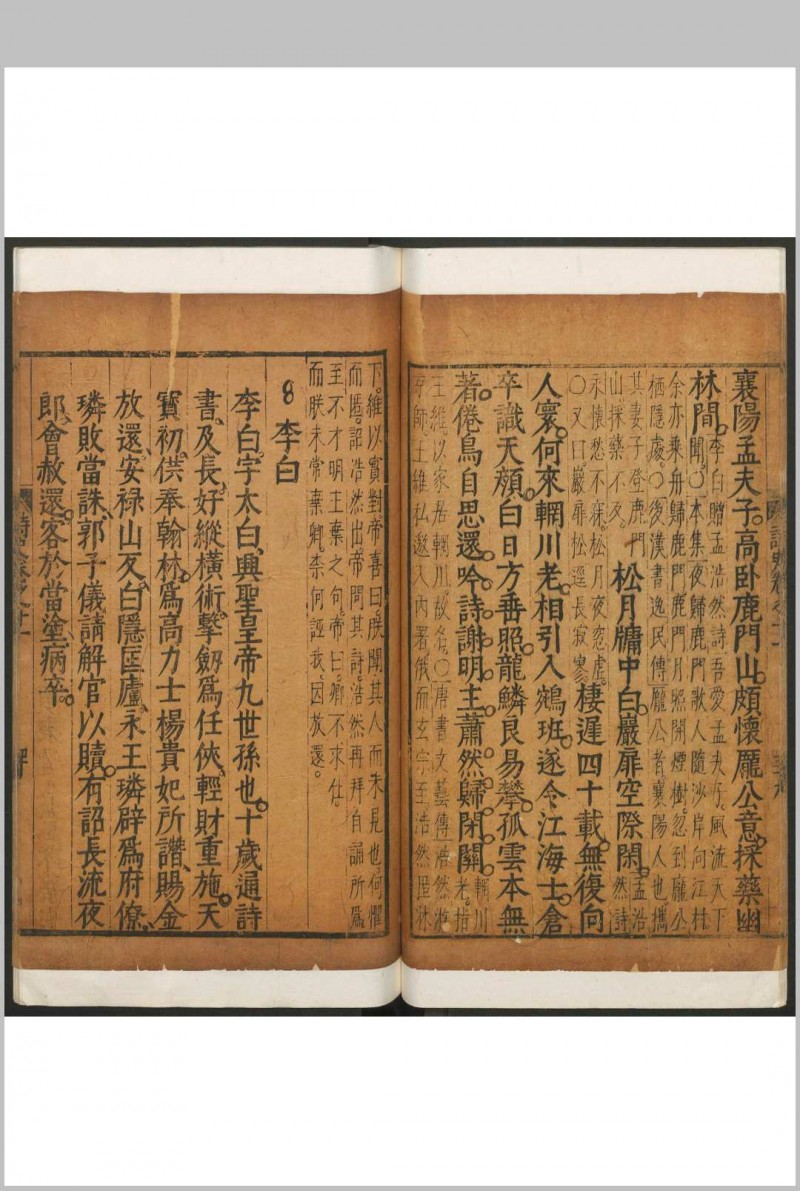 襄陽孟夫子。高卧鹿門山。頗懷龎公意。採藥幽
林間。李白贈孟浩然詩吾愛孟夫子。風流天下
聞。〇本集夜歸鹿門歌人隨沙岸向江村
余亦乗舟歸鹿門鹿門月照開煙樹。忽到龎公
栖隱處。〇後漢書逸民傳龎公者襄陽人也。携
其妻子登鹿門
山。採藥不反。
松月牗中白。巖扉空際閑。孟浩
然詩
永懷愁不寐。松月夜窓虛。
〇又曰巖扉松逕長寂寥
棲遲四十載。無復向
人寰。何來輞川老。相引入鵷班。遂令江海士。倉
卒識天顔。白日方垂照。龍鱗良易攀。孤雲本無
著。倦鳥自思還。吟詩謝明主。蕭然歸閉關。輞川
老。指
王維。以家居輞川。故名。〇唐書文藝傳浩然遊
京師。王維私邀入內署。俄而玄宗至。浩然匿牀
下。維以實對帝喜曰。朕聞其人而未見也。何懼
而匿。詔浩然出。帝問其詩。浩然再拜自誦所爲
至不才明主棄之句。帝曰。卿不求仕。
而朕未常棄卿。柰何誣我。因放還。
8 李白
李白。字太白。興聖皇帝九世孫也。十歲通詩
書、及長、好縱橫術、擊劒爲任俠、輕財重施。天
寳初、供奉翰林。爲高力士楊貴妃所譖、賜金
放還、安禄山反、白隱匡廬、永王璘辟爲府僚、
璘敗當誅、郭子儀請解官以贖。有詔長流夜
郎、會赦還。客於當塗、病卒。